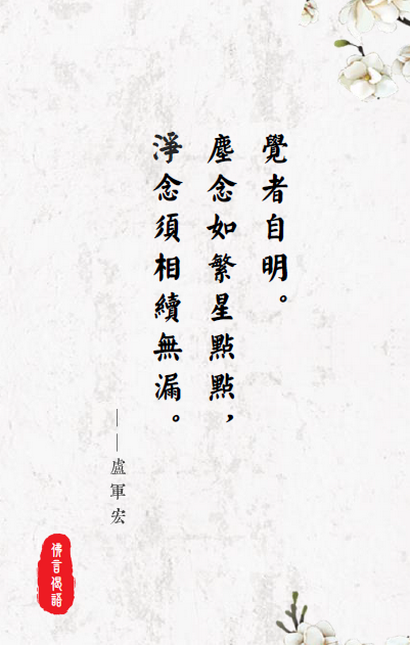 覺者自明。
塵念如繁星點點，
淨念須相續無漏。
——盧軍宏
佛言偈語